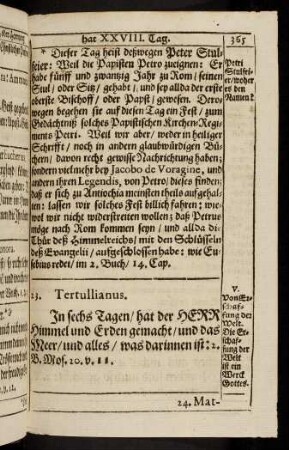 hat XXVIII. Tag.
365
* Dieser Tag heist deßwegen Peter Stul-
feier: Weil die Papisten Petro zueignen: Er
habe fünff und zwantzig Jahr zu Rom / seinen
Stul / oder Sitz / gehabt / und sey allda der erste
oberste Bischoff / oder Papst / gewesen. Dero-
wegen begehen sie auf diesen Tag ein Fest / zum
Gedächtniß solches Papistischen Kirchen-Regi-
ments Petri. Weil wir aber / weder in heiliger
Schrifft / noch in andern glaubwürdigen Bü-
chern / davon recht gewisse Nachrichtung haben;
sondern vielmehr bey Jacobo de Voragine, und
andern ihren Legendis, von Petro / dieses finden;
daß er sich zu Antiochia meinsten theils aufgehal-
ten: lassen wir solches Fest billich fahren; wie-
wol wir nicht widerstreiten wollen; daß Petrus
möge nach Rom kommen seyn / und allda di
Thür deß Himmelreichs / mit den Schlüsseln
deß Evangelii / aufgeschlossen habe: wie Eu
sebius redet / im 2. Buch / 14. Cap.
Petri
Stulfei-
er / woher
es den
Namen?
23. Tertullianus.
In sechs Tagen / hat der HERR
Himmel und Erden gemacht / und das
Meer / und alles / was darinnen ist: 2.
B. Mos. 20. v. 11.
V.
Von Er-
schaf-
fung der
Welt.
Die Er-
schaf-
fung der
Welt
ist ein
Werck
Gottes.
24. Mat-